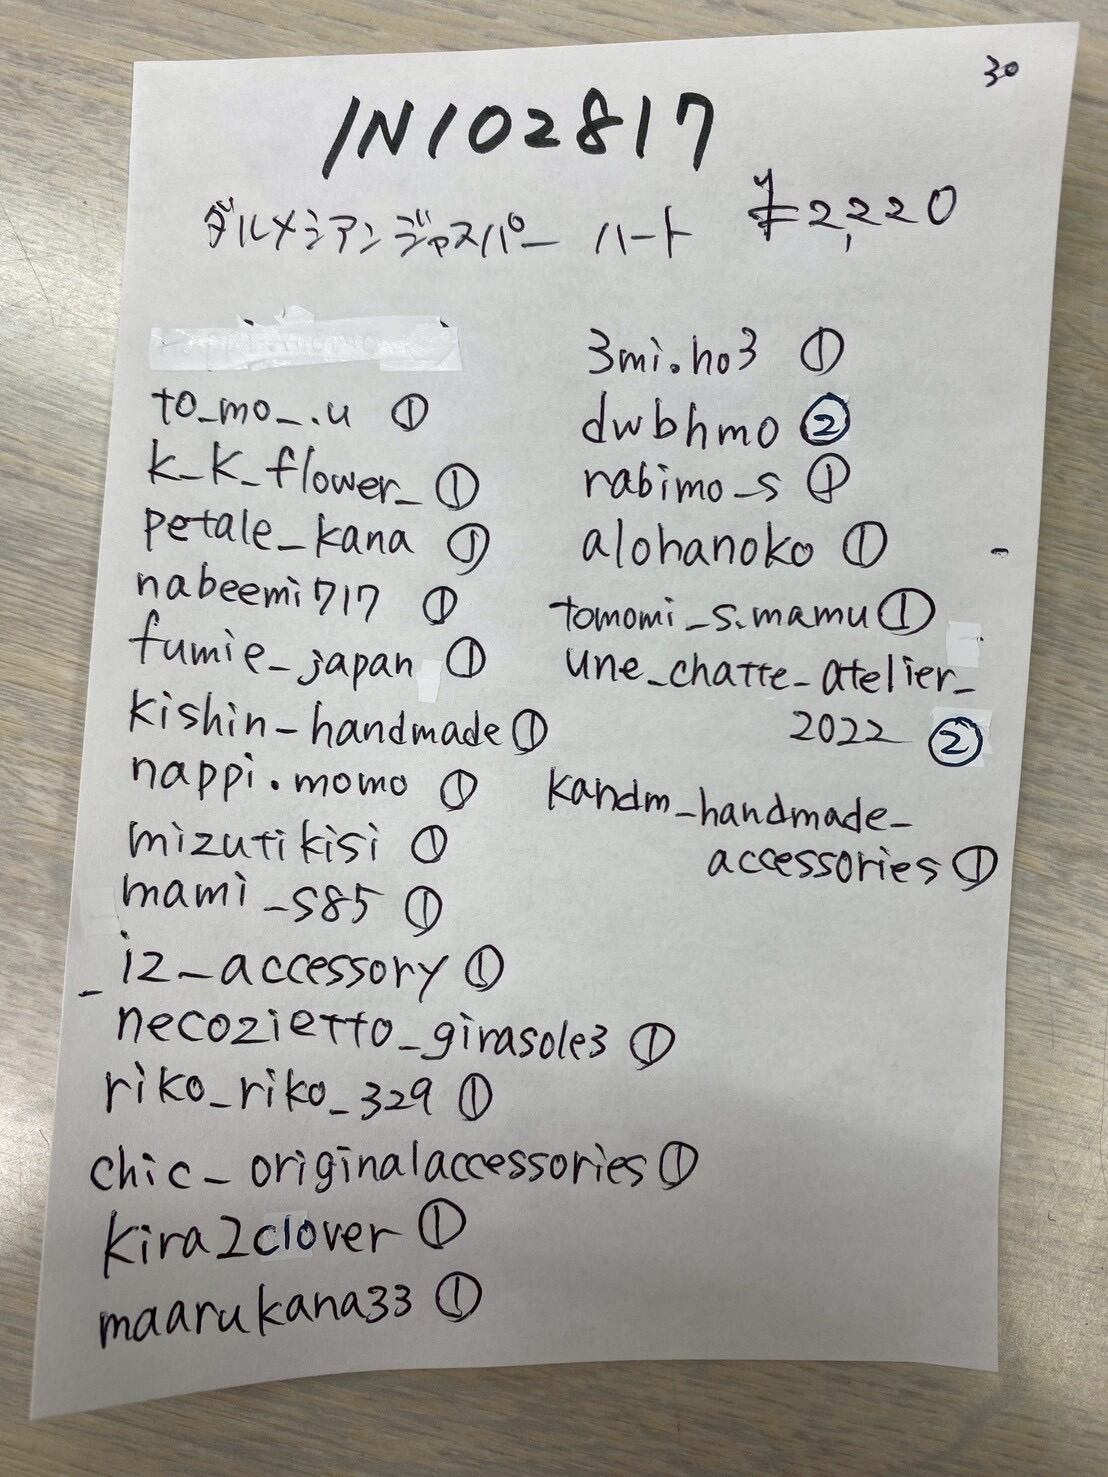 30
IN102817
ダルメシアンジャスパー ハート ¥2,220
to_mo_.u ①
k_k_flower_ ①
petale_kana ①
nabeemi717 ①
fumie_japan ①
kishin_handmade ①
nappi.momo ①
mizutikisi ①
mami_s85 ①
_iz_accessory ①
necozietto_girasole3 ①
riko_riko_329 ①
chic_originalaccessories ①
kira2clover ①
maarukana33 ①
3mi.ho3 ①
dwbhmo ②
rabimo_s ①
alohanoko ①
tomomi_s.mamu ①
une_chatte_atelier_
2022 ②
kandm_handmade_
accessories ①